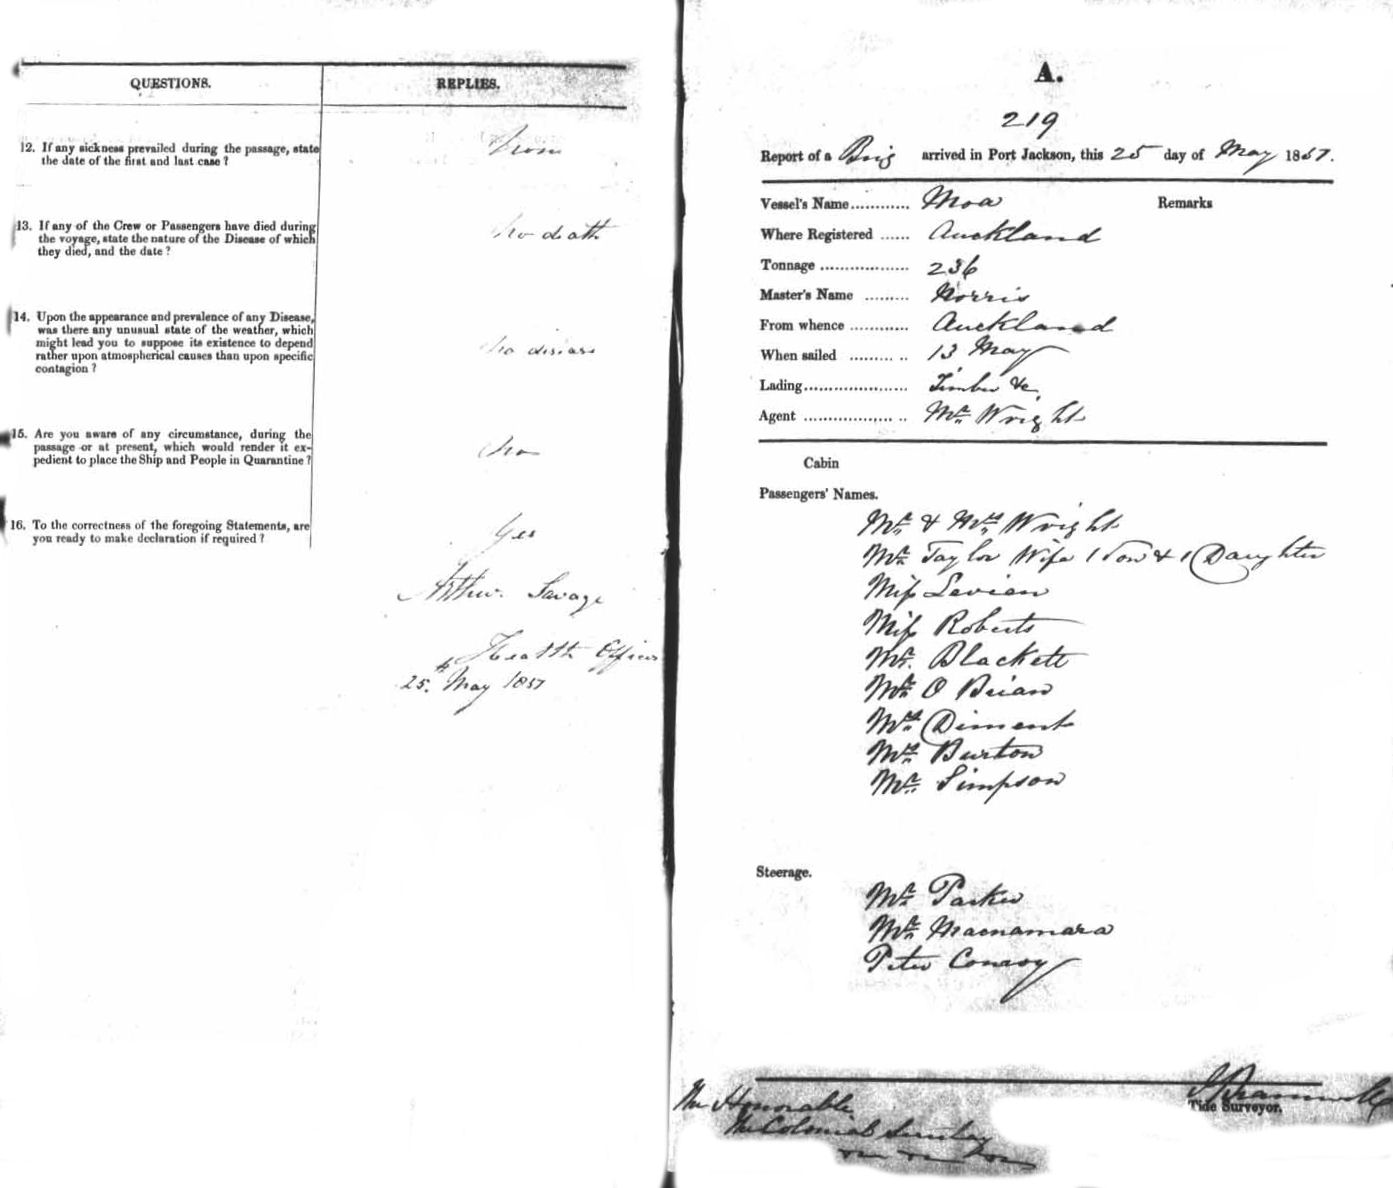 QUESTIONS. REPLIES.
12. If any sickness prevailed during the passage, state
the date of the first and last case ?
None
13. If any of the Crew or Passengers have died during
the voyage, state the nature of the Disease of which
they died, and the date ?
No death
14. Upon the appearance and prevalence of any Disease,
was there any unusual state of the weather, which
might lead you to suppose its existence to depend
rather upon atmospherical causes than upon specific
contagion ?
No disease
15. Are you aware of any circumstance, during the
passage or at present, which would render it ex-
pedient to place the Ship and People in Quarantine ?
No
16. To the correctness of the foregoing Statements, are
you ready to make declaration if required ?
Yes
Arthur Savage
Health Officer
25th May 1857
A.
219
Report of a Brig arrived in Port Jackson, this 25 day of May 1857.
Vessel's Name............ Moa Remarks
Where Registered ...... Auckland
Tonnage .................. 236
Master's Name ......... Norris
From whence ............ Auckland
When sailed ......... .. 13 May
Lading..................... Timber &c
Agent .................. .. Mr Wright
Cabin
Passengers' Names.
Mr & Mrs Wright
Mr Taylor Wife 1 Son & 1 Daughter
Miss Levien
Miss Roberts
Mr. Blackett
Mr O Brian
Mrs Diment
Mrs Burton
Mr Simpson
Steerage.
Mr Parker
Mr Macnamara
Peter Conroy
Tide Surveyor.
The Honorable
The Colonial Secretary